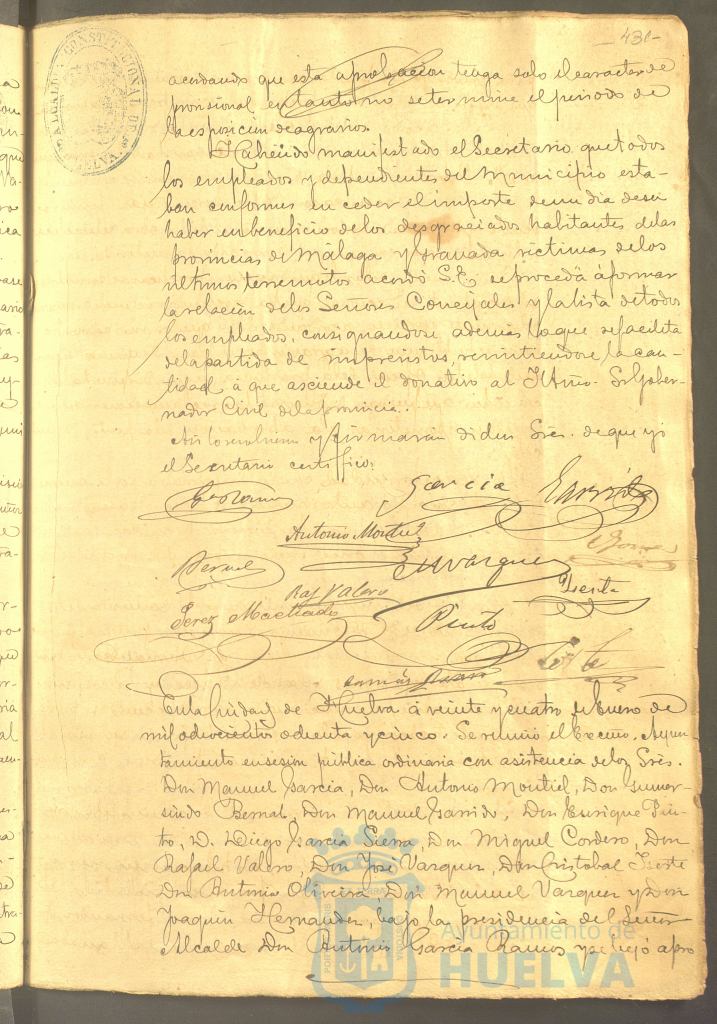 430
ALCALDIA CONSTITUCIONAL DE HUELVA
acordando que esta aprobacion tenga solo el caracter de
provisional en tanto no se termine el periodo de
la esposicion de agravios.
Habiendo manifestado el Secretario que todos
los empleados y dependientes del Municipio esta-
ban conformes en ceder el importe de un dia de su
haber en beneficio de los desgraciados habitantes de las
provincias de Málaga y Granada victimas de los
ultimos terremotos acordó S.E. se proceda á formar
la relacion de los Señores Concejales y la lista de todos
los empleados, consignandose ademas lo que se facilita
de la partida de imprevistos, remitiendose la can-
tidad á que asciende el donativo al Iltmo. Sr. Gober-
nador Civil de la provincia.
Asi lo resolvieron y firmaran dichos Sres. de que yo
el Secretario certifico.
Garcia Garrido
Antonio Montiel
Bernal E Vazquez
Raf Valero Yeste
Perez Machado Pinto
En la Ciudad de Huelva á veinte y cuatro de Enero de
mil ochocientos ochenta y cinco. Se reunió el Excmo. Ayun-
tamiento en sesion pública ordinaria con asistencia de los Sres.
Don Manuel Garcia, Don Antonio Montiel, Don Gumer-
sindo Bernal, Don Manuel Garrido, Don Enrique Pin-
to, D. Diego Garcia Sierra, Don Miguel Cordero, Don
Rafael Valero, Don José Vazquez, Don Cristobal Yeste
Don Antonio Oliveira Don Manuel Vazquez y Don
Joaquin Hernandez, bajo la presidencia del Señor
Alcalde Don Antonio Garcia Ramos, y se leyó apro
Ayuntamiento de
HUELVA